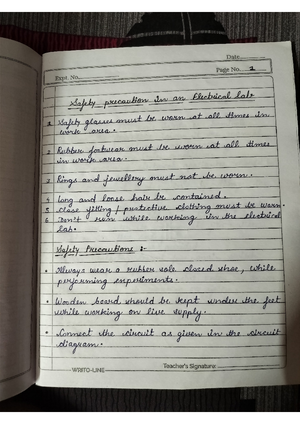 Date
Expt. No.
Page No. 2
Safety precaution in an Electrical lab
1. Safety glasses must be worn at all times in
work area.
2. Rubber footwear must be worn at all times
in work area.
3. Rings and jewellery must not be worn.
4. Long and loose hair be contained.
5. Close fitting / protective clothing must be worn.
6. Don't run while working in the electrical
lab.
Safety Precautions :-
• Always wear a rubber sole closed shoe, while
performing experiments.
• Wooden board should be kept under the feet
while working on live supply.
• Connect the circuit as given in the circuit
diagram.
WRITO-LINE
Teacher's Signature: